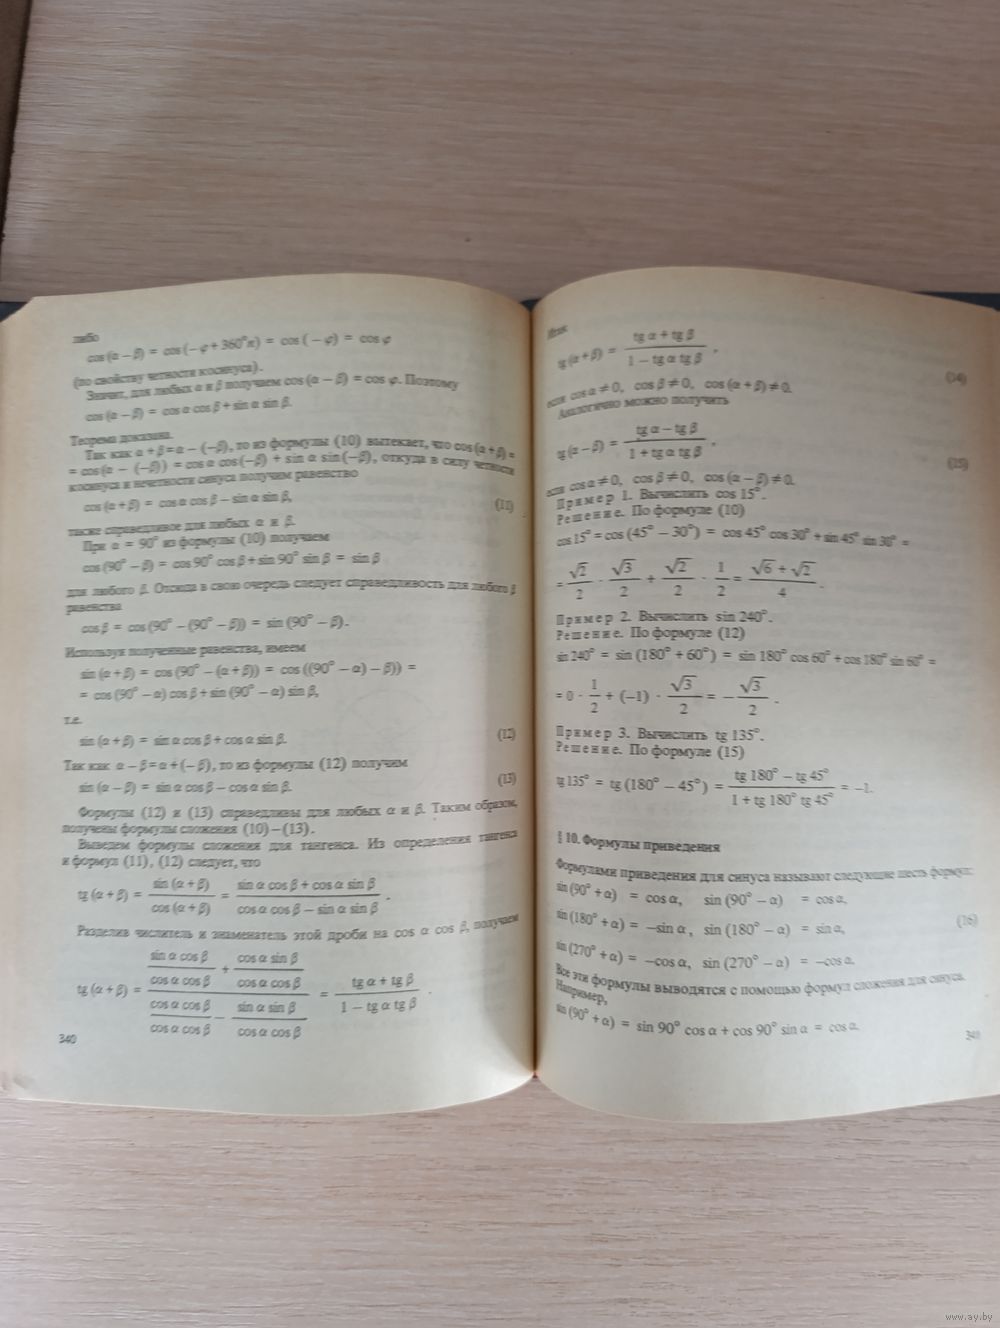 либо
cos (α − β) = cos (− φ + 360°n) = cos (− φ) = cos φ
(по свойству четности косинуса).
Значит, для любых α и β получаем cos (α − β) = cos φ. Поэтому
cos (α − β) = cos α cos β + sin α sin β.
Теорема доказана.
Так как α + β = α − (−β), то из формулы (10) вытекает, что cos (α + β) =
= cos (α − (−β)) = cos α cos (−β) + sin α sin (−β), откуда в силу четности
косинуса и нечетности синуса получим равенство
cos (α + β) = cos α cos β − sin α sin β, (11)
также справедливое для любых α и β.
При α = 90° из формулы (10) получаем
cos (90° − β) = cos 90° cos β + sin 90° sin β = sin β
для любого β. Отсюда в свою очередь следует справедливость для любого β
равенства
cos β = cos (90° − (90° − β)) = sin (90° − β).
Используя полученные равенства, имеем
sin (α + β) = cos (90° − (α + β)) = cos ((90° − α) − β)) =
= cos (90° − α) cos β + sin (90° − α) sin β,
т.е.
sin (α + β) = sin α cos β + cos α sin β. (12)
Так как α − β = α + (− β), то из формулы (12) получим
sin (α − β) = sin α cos β − cos α sin β. (13)
Формулы (12) и (13) справедливы для любых α и β. Таким образом,
получены формулы сложения (10) − (13).
Выведем формулы сложения для тангенса. Из определения тангенса
и формул (11), (12) следует, что
tg (α + β) = sin (α + β) / cos (α + β) = (sin α cos β + cos α sin β) / (cos α cos β − sin α sin β).
Разделив числитель и знаменатель этой дроби на cos α cos β, получаем
tg (α + β) = (sin α cos β / cos α cos β + cos α sin β / cos α cos β) / (cos α cos β / cos α cos β − sin α sin β / cos α cos β) = (tg α + tg β) / (1 − tg α tg β).
340
Итак
tg (α + β) = (tg α + tg β) / (1 − tg α tg β), (14)
если cos α ≠ 0, cos β ≠ 0, cos (α + β) ≠ 0.
Аналогично можно получить
tg (α − β) = (tg α − tg β) / (1 + tg α tg β), (15)
если cos α ≠ 0, cos β ≠ 0, cos (α − β) ≠ 0.
Пример 1. Вычислить cos 15°.
Решение. По формуле (10)
cos 15° = cos (45° − 30°) = cos 45° cos 30° + sin 45° sin 30° =
= √2/2 · √3/2 + √2/2 · 1/2 = (√6 + √2)/4.
Пример 2. Вычислить sin 240°.
Решение. По формуле (12)
sin 240° = sin (180° + 60°) = sin 180° cos 60° + cos 180° sin 60° =
= 0 · 1/2 + (−1) · √3/2 = − √3/2.
Пример 3. Вычислить tg 135°.
Решение. По формуле (15)
tg 135° = tg (180° − 45°) = (tg 180° − tg 45°) / (1 + tg 180° tg 45°) = −1.
§ 10. Формулы приведения
Формулами приведения для синуса называют следующие шесть формул:
sin (90° + α) = cos α, sin (90° − α) = cos α,
sin (180° + α) = −sin α, sin (180° − α) = sin α, (16)
sin (270° + α) = −cos α, sin (270° − α) = −cos α.
Все эти формулы выводятся с помощью формул сложения для синуса.
Например,
sin (90° + α) = sin 90° cos α + cos 90° sin α = cos α.
341
www.ay.by